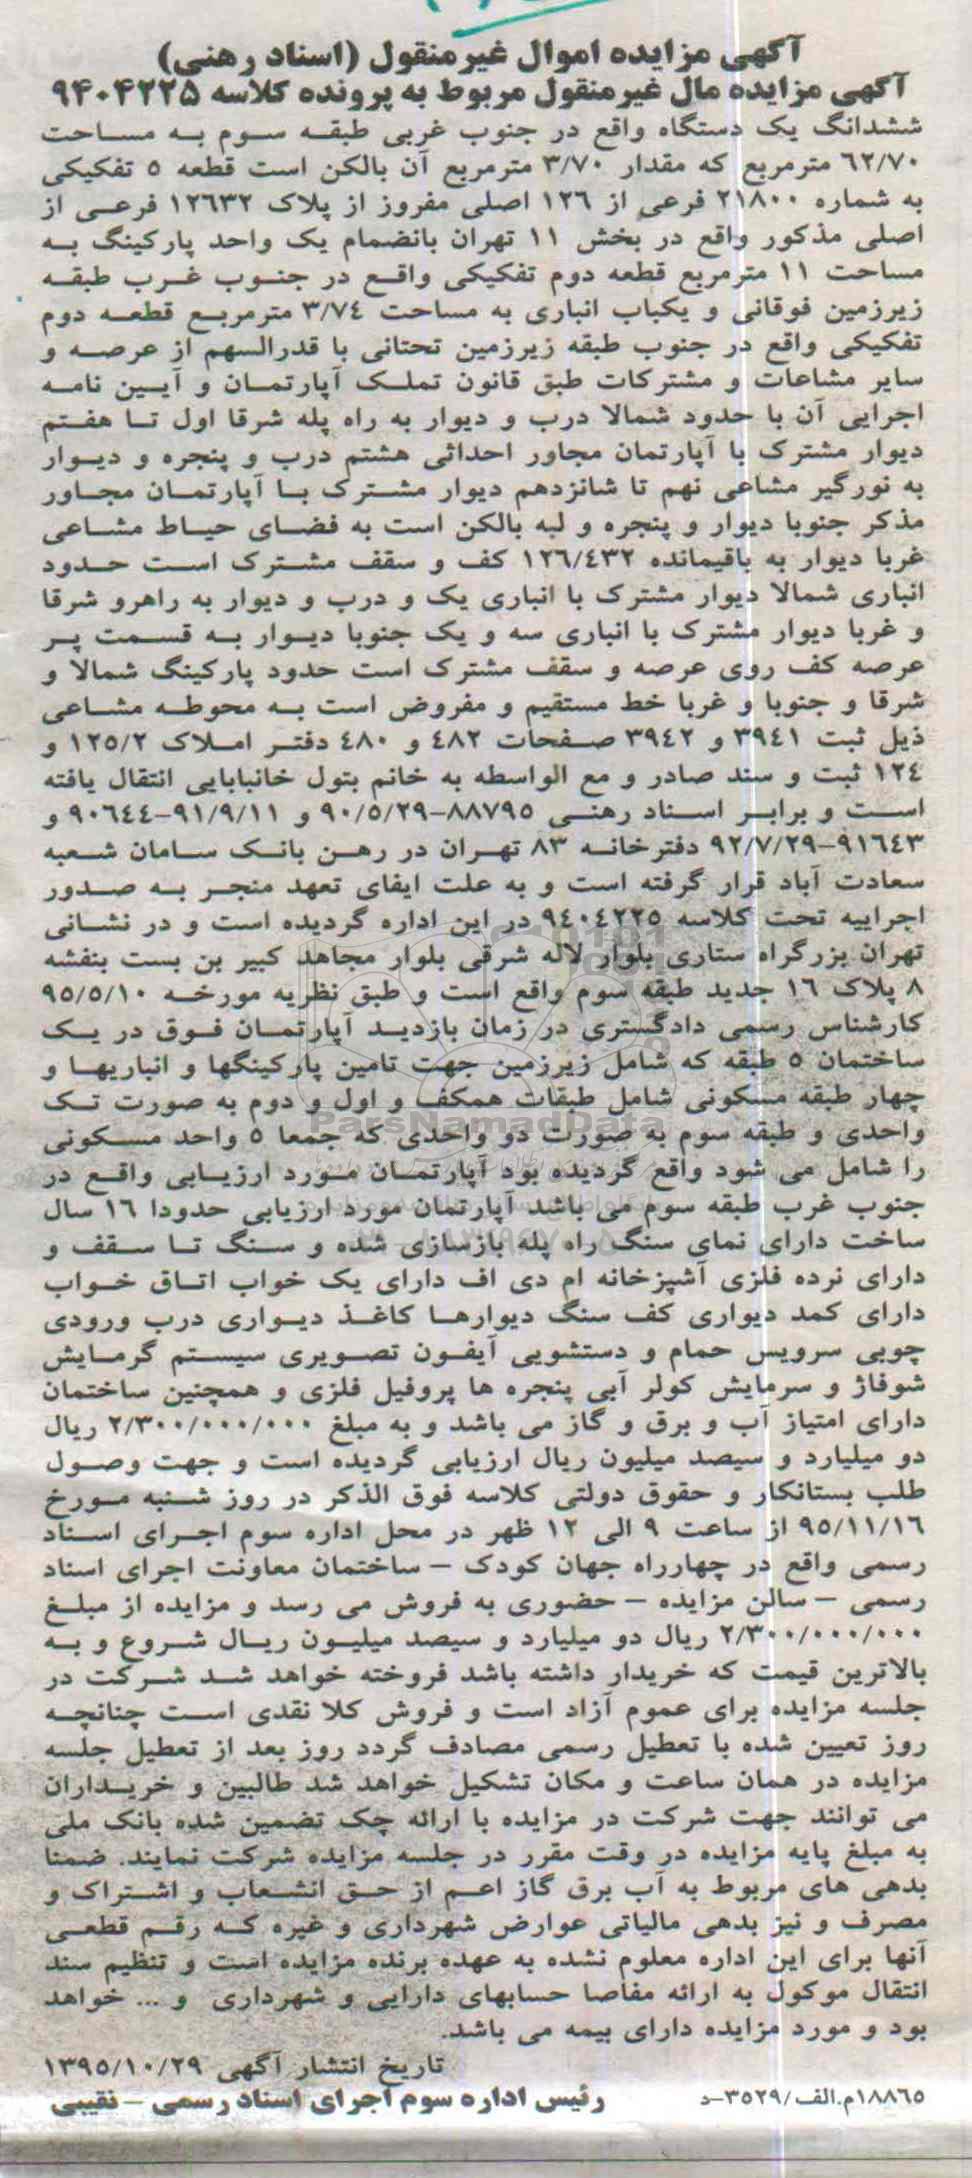 آگهی مزایده اموال غیرمنقول (اسناد رهنی)
آگهی مزایده مال غیرمنقول مربوط به پرونده کلاسه ۹۴۰۴۲۲۵
ششدانگ یک دستگاه واقع در جنوب غربی طبقه سوم به مساحت
۶۲/۷۰ مترمربع که مقدار ۳/۷۰ مترمربع آن بالکن است قطعه ۵ تفکیکی
به شماره ۲۱۸۰۰ فرعی از ۱۲۶ اصلی مفروز از پلاک ۱۲۶۳۲ فرعی از
اصلی مذکور واقع در بخش ۱۱ تهران بانضمام یک واحد پارکینگ به
مساحت ۱۱ مترمربع قطعه دوم تفکیکی واقع در جنوب غرب طبقه
زیرزمین فوقانی و یکباب انباری به مساحت ۳/۷٤ مترمربع قطعه دوم
تفکیکی واقع در جنوب طبقه زیرزمین تحتانی با قدرالسهم از عرصه و
سایر مشاعات و مشترکات طبق قانون تملک آپارتمان و آیین نامه
اجرایی آن با حدود شمالا درب و دیوار به راه پله شرقا اول تا هفتم
دیوار مشترک با آپارتمان مجاور احداثی هشتم درب و پنجره و دیوار
به نورگیر مشاعی نهم تا شانزدهم دیوار مشترک با آپارتمان مجاور
مذکر جنوبا دیوار و پنجره و لبه بالکن است به فضای حیاط مشاعی
غربا دیوار به باقیمانده ۱۲٦/٤۳۲ کف و سقف مشترک است حدود
انباری شمالا دیوار مشترک با انباری یک و درب و دیوار به راهرو شرقا
و غربا دیوار مشترک با انباری سه و یک جنوبا دیوار به قسمت پر
عرصه کف روی عرصه و سقف مشترک است حدود پارکینگ شمالا و
شرقا و جنوبا و غربا خط مستقیم و مفروض است به محوطه مشاعی
ذیل ثبت ۳۹٤۱ و ۳۹٤۲ صفحات ٤۸۲ و ٤۸۰ دفتر املاک ۱۲۵/۲ و
۱۲٤ ثبت و سند صادر و مع الواسطه به خانم بتول خانبابایی انتقال یافته
است و برابر اسناد رهنی ۸۸۷۹۵-۹۰/۵/۲۹ و ۹۱/۹/۱۱-۹۰٦٤٤ و
۹۱٦٤۳-۹۲/۷/۲۹ دفترخانه ۸۳ تهران در رهن بانک سامان شعبه
سعادت آباد قرار گرفته است و به علت ایفای تعهد منجر به صدور
اجراییه تحت کلاسه ۹٤۰٤۲۲۵ در این اداره گردیده است و در نشانی
تهران بزرگراه ستاری بلوار لاله شرقی بلوار مجاهد کبیر بن بست بنفشه
۸ پلاک ۱٦ جدید طبقه سوم واقع است و طبق نظریه مورخه ۹۵/۵/۱۰
کارشناس رسمی دادگستری در زمان بازدید آپارتمان فوق در یک
ساختمان ۵ طبقه که شامل زیرزمین جهت تامین پارکینگها و انباریها و
چهار طبقه مسکونی شامل طبقات همکف و اول و دوم به صورت تک
واحدی و طبقه سوم به صورت دو واحدی که جمعا ۵ واحد مسکونی
ParsNamadData
را شامل می شود واقع گردیده بود آپارتمان مورد ارزیابی واقع در
جنوب غرب طبقه سوم می باشد آپارتمان مورد ارزیابی حدودا ۱٦ سال
ساخت دارای نمای سنگ راه پله بازسازی شده و سنگ تا سقف و
دارای نرده فلزی آشپزخانه ام دی اف دارای یک خواب اتاق خواب
دارای کمد دیواری کف سنگ دیوارها کاغذ دیواری درب ورودی
چوبی سرویس حمام و دستشویی آیفون تصویری سیستم گرمایش
شوفاژ و سرمایش کولر آبی پنجره ها پروفیل فلزی و همچنین ساختمان
دارای امتیاز آب و برق و گاز می باشد و به مبلغ ۲/۳۰۰/۰۰۰/۰۰۰ ریال
دو میلیارد و سیصد میلیون ریال ارزیابی گردیده است و جهت وصول
طلب بستانکار و حقوق دولتی کلاسه فوق الذکر در روز شنبه مورخ
۹۵/۱۱/۱٦ از ساعت ۹ الی ۱۲ ظهر در محل اداره سوم اجرای اسناد
رسمی واقع در چهارراه جهان کودک – ساختمان معاونت اجرای اسناد
رسمی – سالن مزایده – حضوری به فروش می رسد و مزایده از مبلغ
۲/۳۰۰/۰۰۰/۰۰۰ ریال دو میلیارد و سیصد میلیون ریال شروع و به
بالاترین قیمت که خریدار داشته باشد فروخته خواهد شد شرکت در
جلسه مزایده برای عموم آزاد است و فروش کلا نقدی است چنانچه
روز تعیین شده با تعطیل رسمی مصادف گردد روز بعد از تعطیل جلسه
مزایده در همان ساعت و مکان تشکیل خواهد شد طالبین و خریداران
می توانند جهت شرکت در مزایده با ارائه چک تضمین شده بانک ملی
به مبلغ پایه مزایده در وقت مقرر در جلسه مزایده شرکت نمایند. ضمنا
بدهی های مربوط به آب برق گاز اعم از حق انشعاب و اشتراک و
مصرف و نیز بدهی مالیاتی عوارض شهرداری و غیره که رقم قطعی
آنها برای این اداره معلوم نشده به عهده برنده مزایده است و تنظیم سند
انتقال موکول به ارائه مفاصا حسابهای دارایی و شهرداری و ... خواهد
بود و مورد مزایده دارای بیمه می باشد.
تاریخ انتشار آگهی ۱۳۹۵/۱۰/۲۹
۱۸۸٦۵م.الف/۳۵۲۹-د رئیس اداره سوم اجرای اسناد رسمی – نقیبی